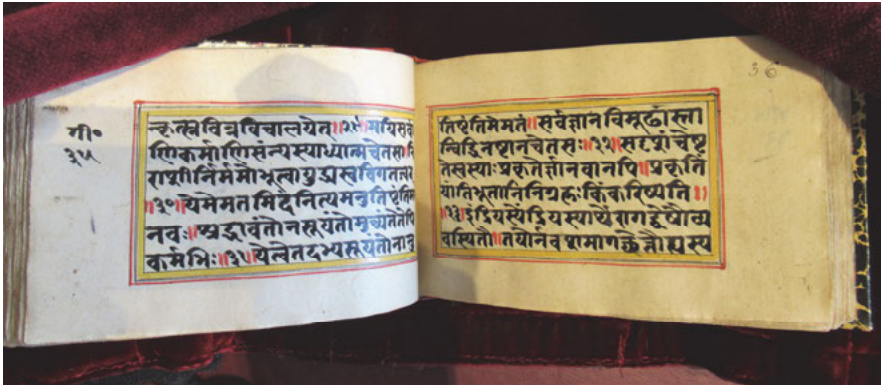 गी॰
३५
न्कृत्स्नविन्नविचालयेत्॥२९॥मयिसर्वा
णिकर्माणिसंन्यस्याध्यात्मचेतसा॥नि
राशीर्निर्ममोभूत्वायुद्ध्यस्वविगतज्वर
॥३०॥येमेमतमिदंनित्यमनुतिष्ठंतिमा
नवाः॥श्रद्धावंतोनसूयंतोमुच्यंतेतेपि
कर्मभिः॥३१॥येत्वेतदभ्यसूयंतोनानु
36
तिष्ठंतिमेमतं॥सर्वज्ञानविमूढांस्ता
न्विद्धिनष्टानचेतसः॥३२॥सदृशंचेष्ट
तेस्वस्याःप्रकृतेर्ज्ञानवानपि॥प्रकृतिं
यांतिभूतानिनिग्रहःकिंकरिष्यति॥
॥३३॥इंद्रियस्येंद्रियस्यार्थेरागद्वेषौव्य
वस्थितौ॥तयोर्नवशमागच्छेत्तौह्यस्य